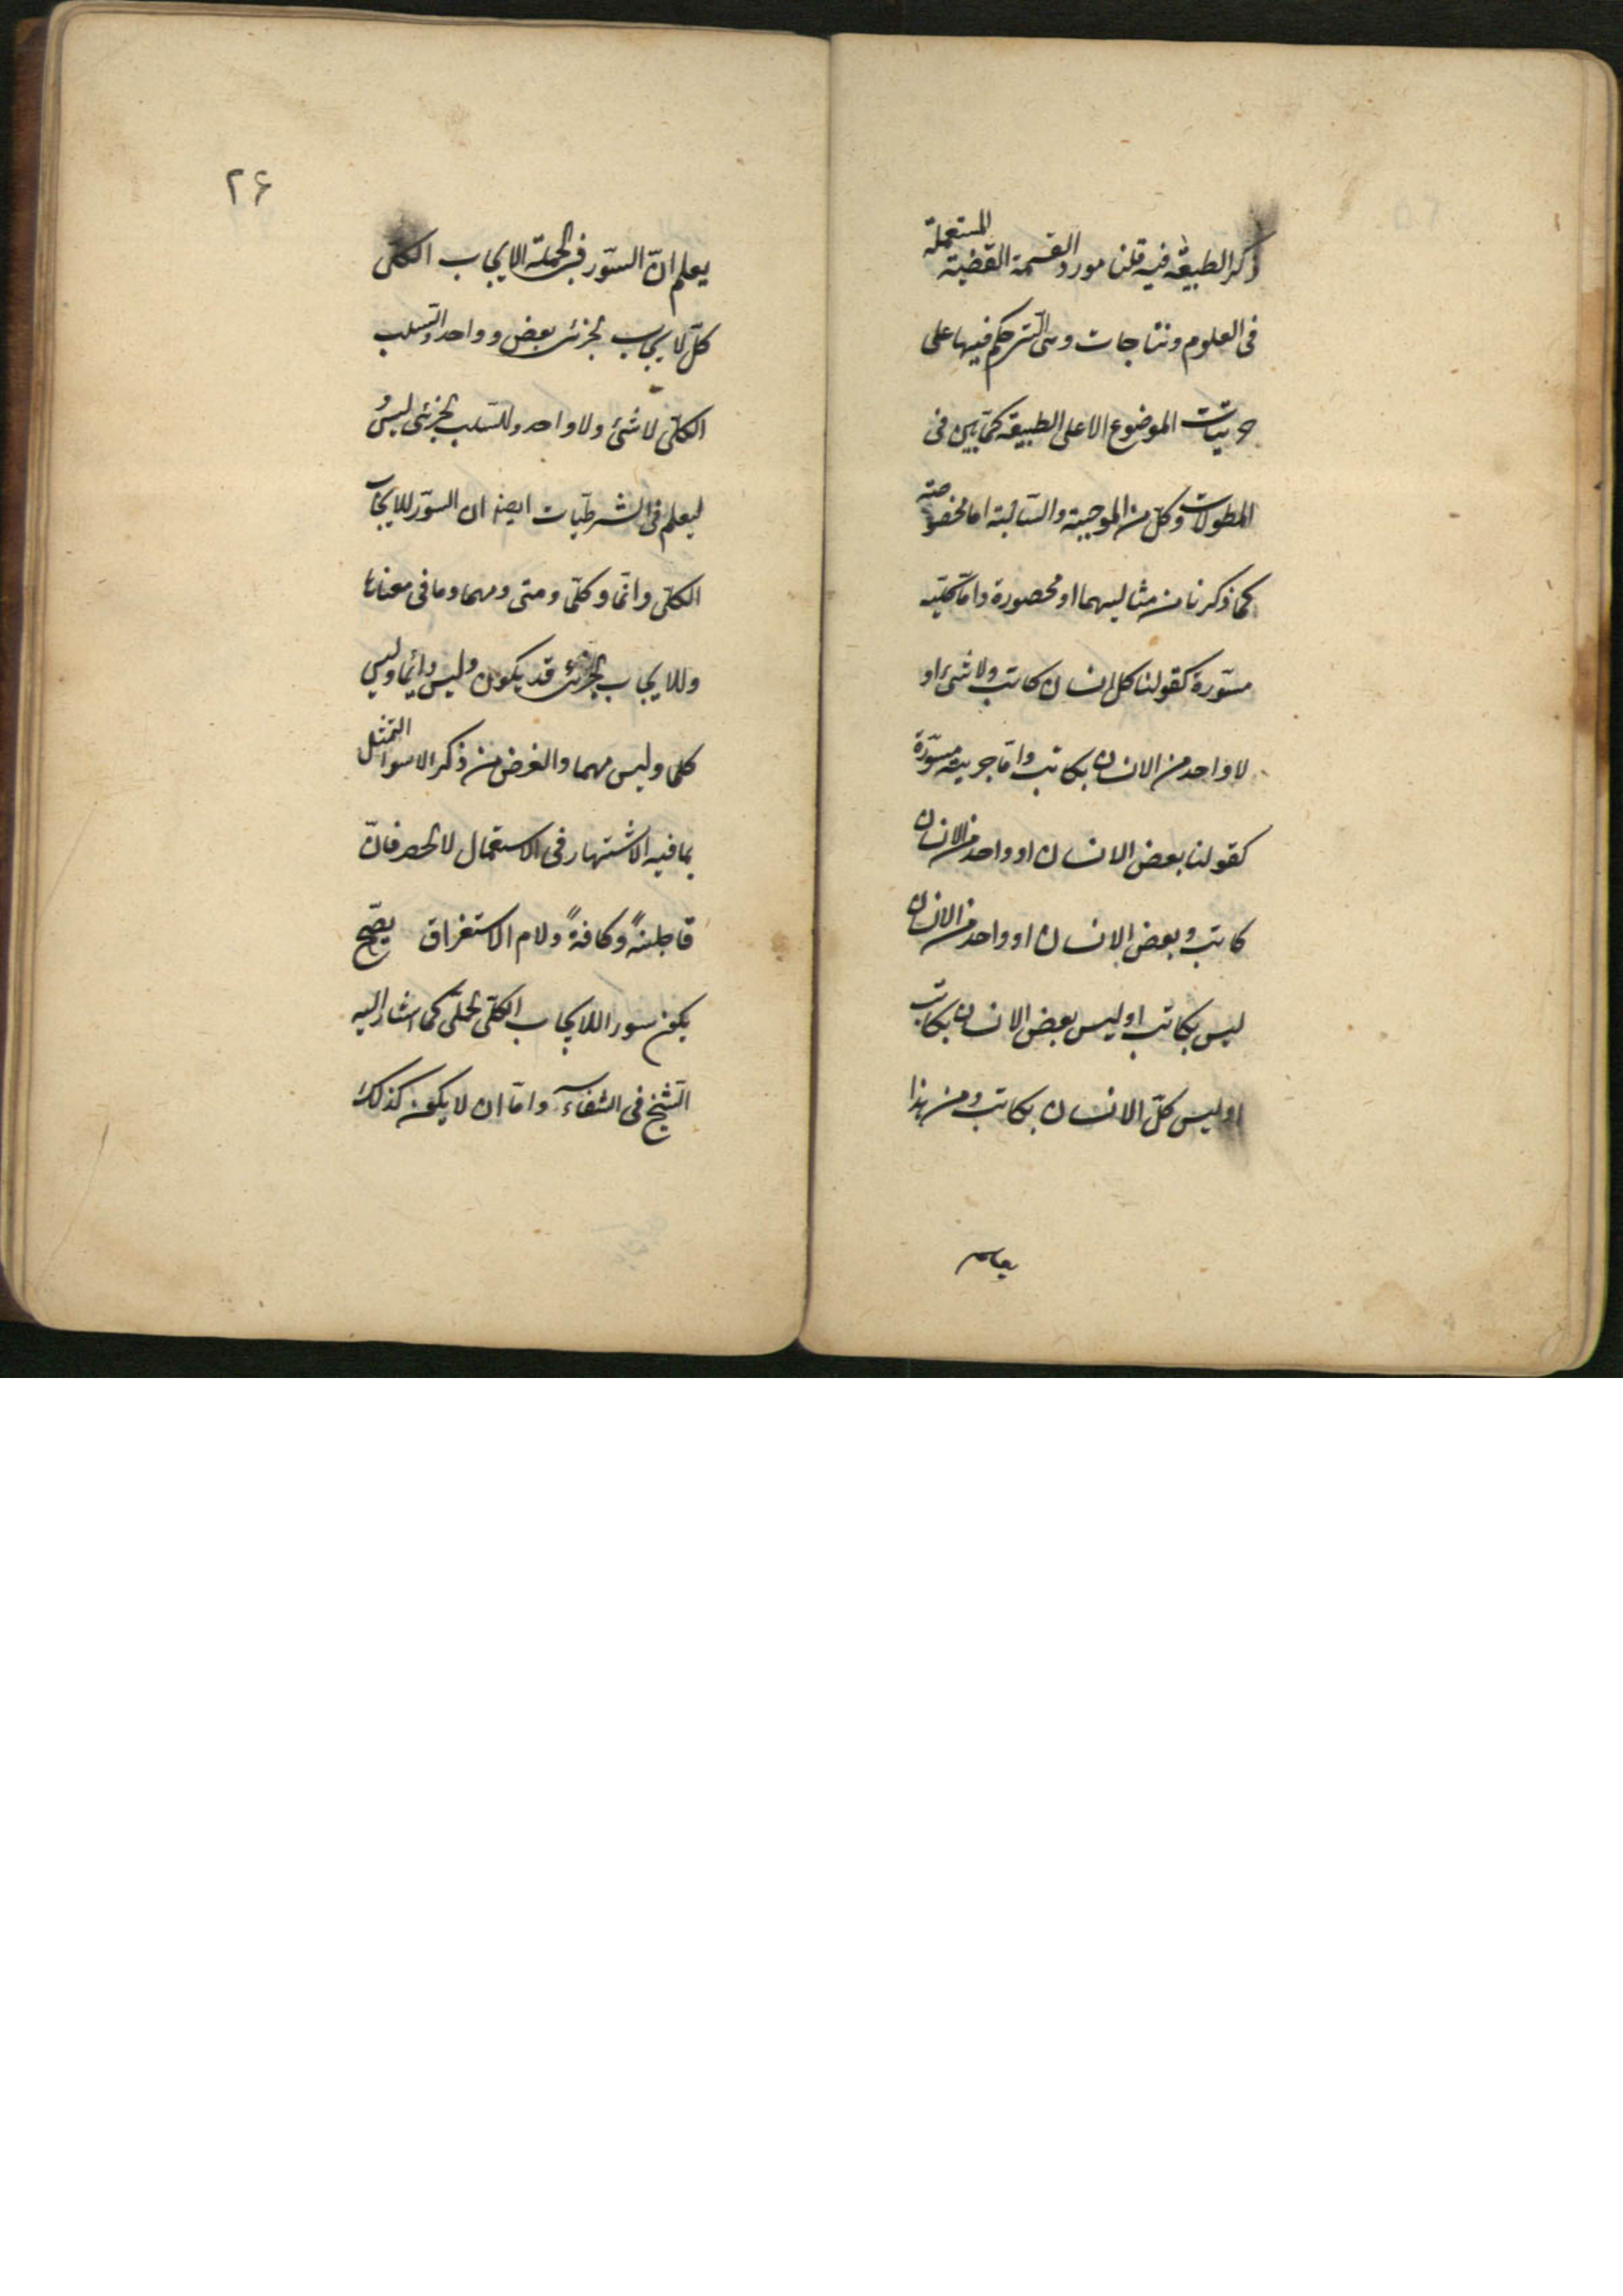 ذكر الطبيعة فيه قلنا مورد القسمة القضية المستعملة
فى العلوم ونتاجات وهى التى حكم فيها على
جزئيات الموضوع الا على الطبيعة كما بين فى
المطولات وكل من الموجبة والسالبة اما مخصوصة
كما ذكرنا من مثاليهما او محصورة واما كلية
مسورة كقولنا كل انسان كاتب ولا شئ او
لا واحد من الانسان بكاتب واما جزئية مسورة
كقولنا بعض الانسان او واحد من الانسان
كاتب وبعض الانسان او واحد من الانسان
ليس بكاتب او ليس بعض الانسان بكاتب
او ليس كل الانسان بكاتب ومن هذا
يعلم
٢۶
يعلم ان السور فى الحملية الايجاب الكلى
كل لايجاب الجزئى بعض وواحد والسلب
الكلى لا شئ ولا واحد وللسلب الجزئى ليس و
ليعلم فى الشرطيات ايضا ان السور للايجاب
الكلى دائما وكلما ومتى ومهما وما فى معناها
وللايجاب الجزئى قد يكون وليس دائما وليس
كلما وليس مهما والغرض من ذكر الاسوار التمثل
بما فيه الاشتهار فى الاستعمال لا الحصر فان
قاطبةً وكافةً ولام الاستغراق يصح
يكون سور اللايجاب الكلى الحملى كما اشار اليه
الشيخ فى الشفاء واما ان لا يكون كذلك